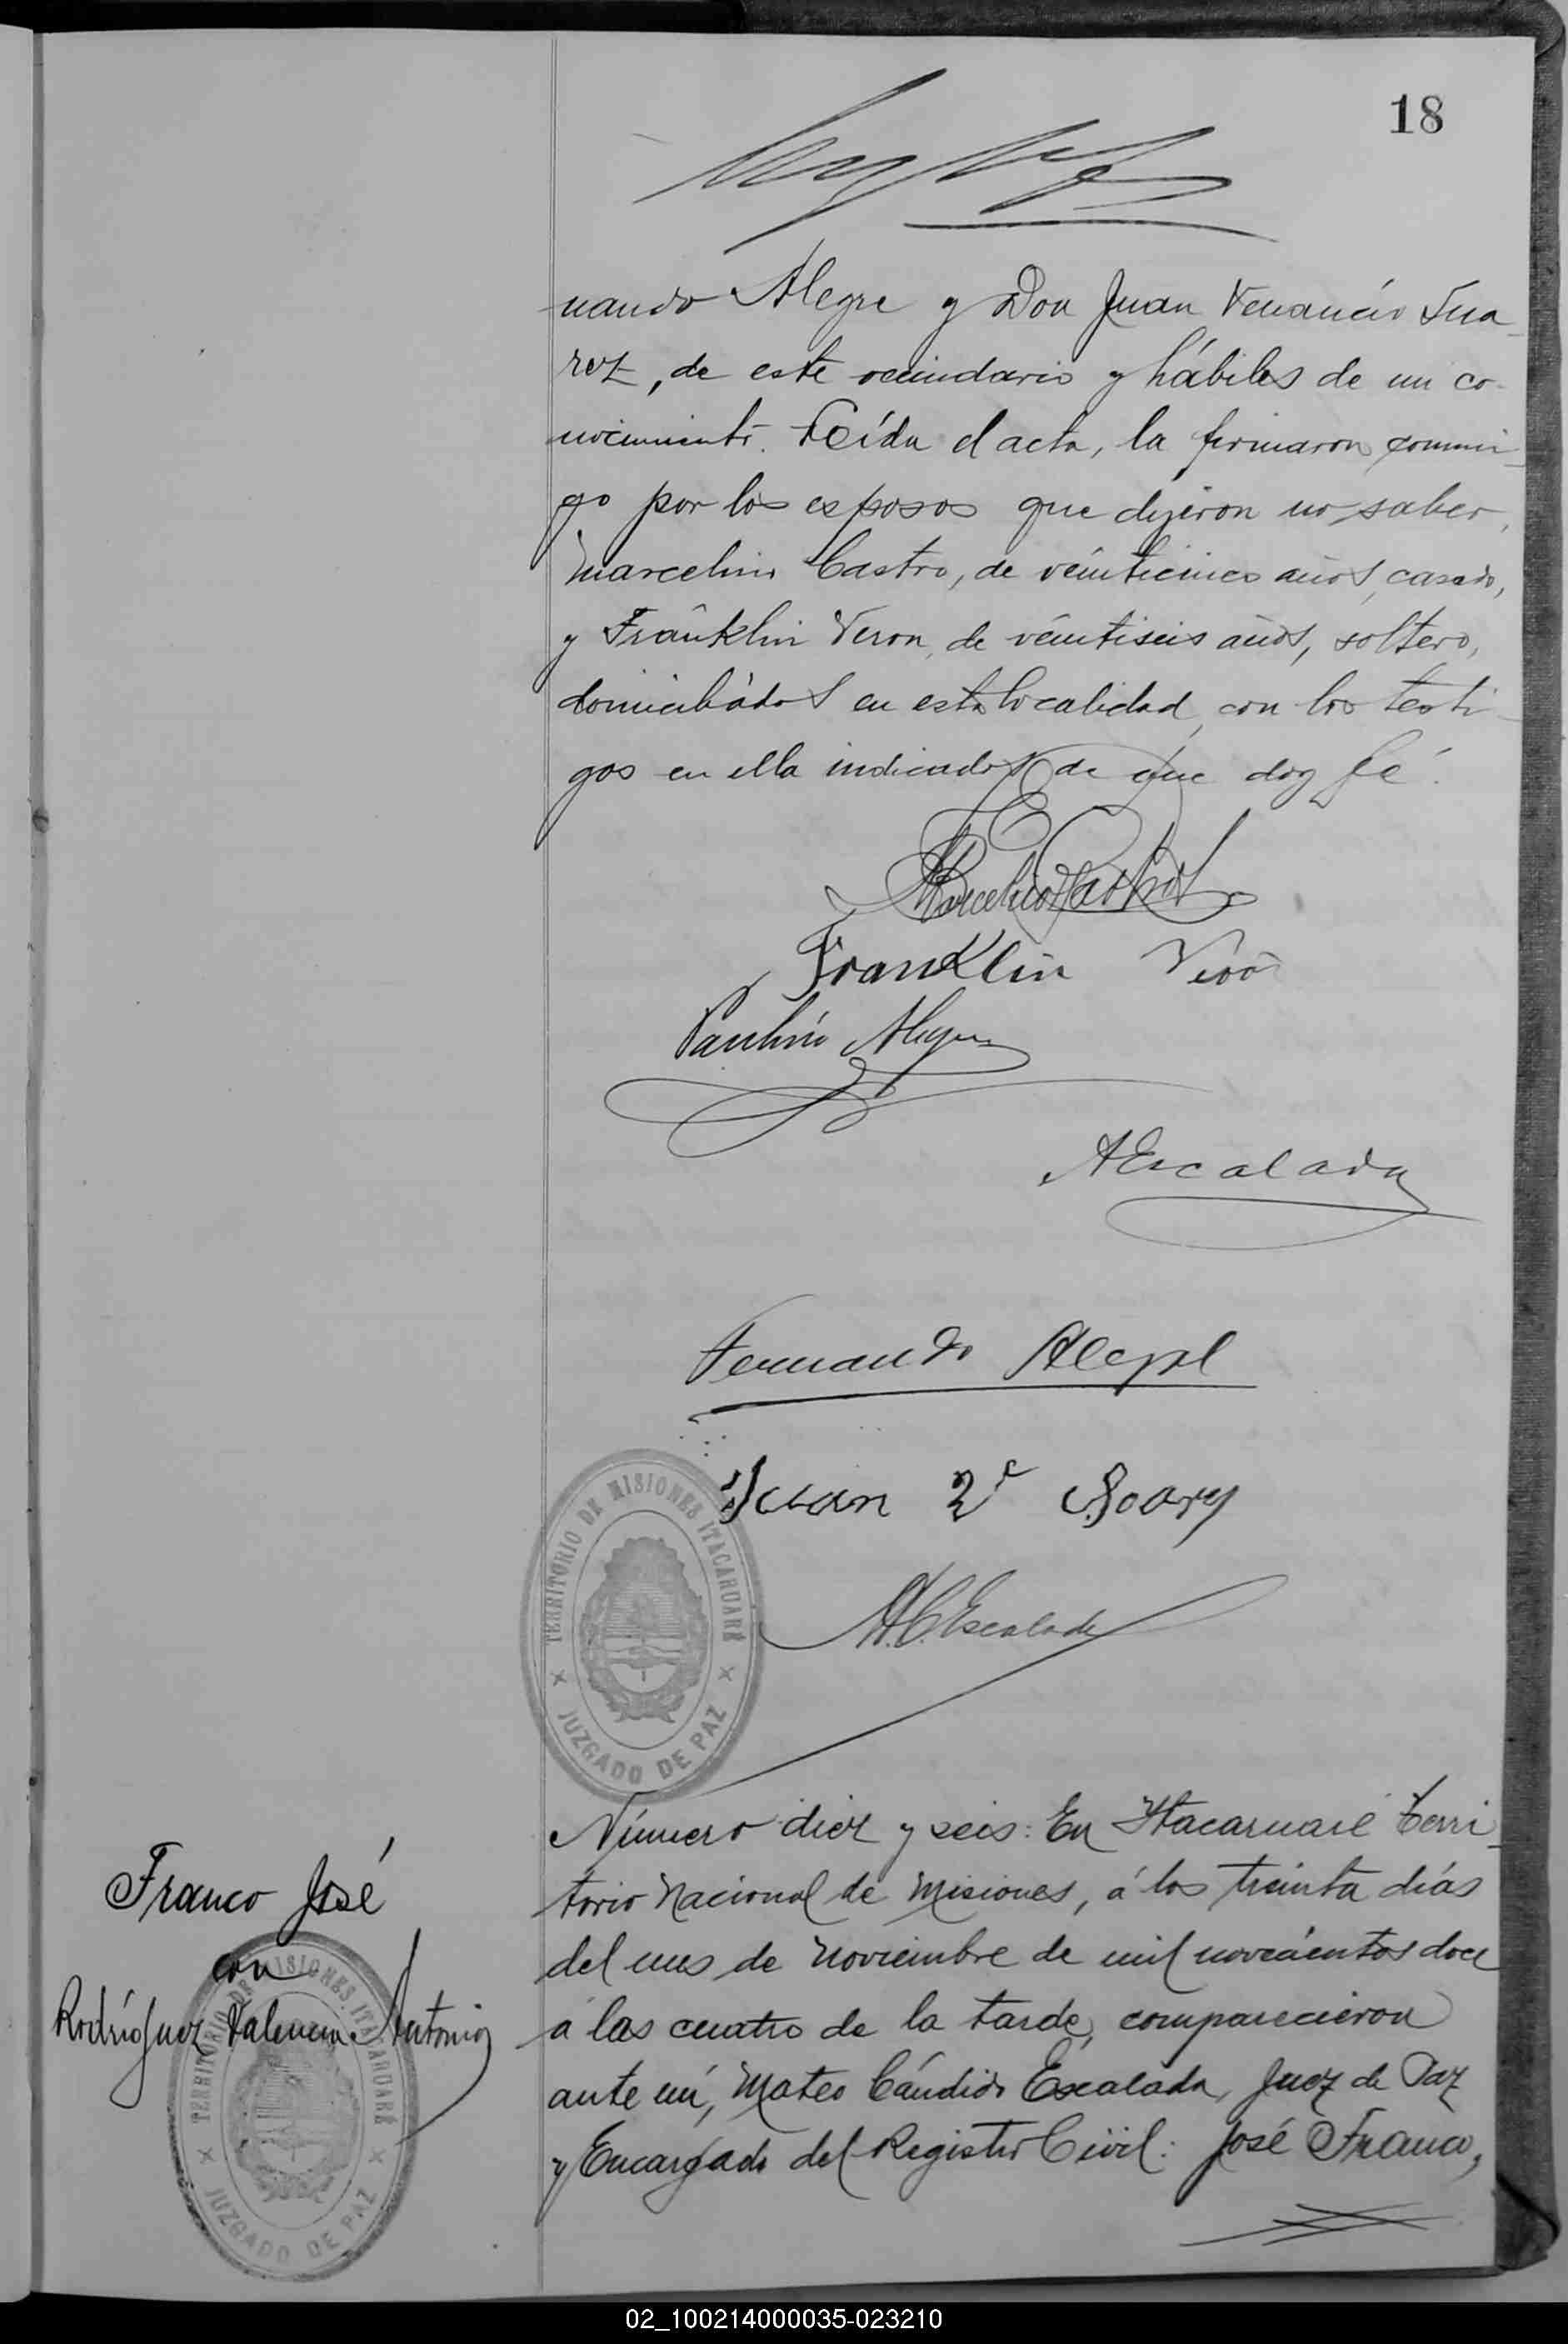 18
nando Alegre y Don Juan Venancio Sua
rez, de este vecindario y hábiles de mi co-
nocimiento. Leída el acta, la firmaron conmi-
go por los esposos que dijeron no saber,
Marcelino Castro, de veinticinco años, casado,
y Franklin Veron, de veintiseis años, soltero,
domiciliados en esta localidad, con los testi-
gos en ella indicados de que doy fé.
Marcelino Castro
Franklin Veron
Paulino Alegre
AEscalada
Fernando Alegre
Juan
M.C.Escalada
TERRITORIO DE MISIONES ITACARUARÉ
JUZGADO DE PAZ
Número diez y seis: En Itacaruaré Terri-
torio Nacional de Misiones, á los treinta días
del mes de Noviembre de mil novecientos doce
á las cuatro de la tarde, comparecieron
ante mí, Mateo Cándido Escalada, Juez de Paz
y Encargado del Registro Civil: José Franco,
Franco José
con
Rodríguez Valencia Antonia
TERRITORIO DE MISIONES ITACARUARÉ
JUZGADO DE PAZ
02_100214000035-023210